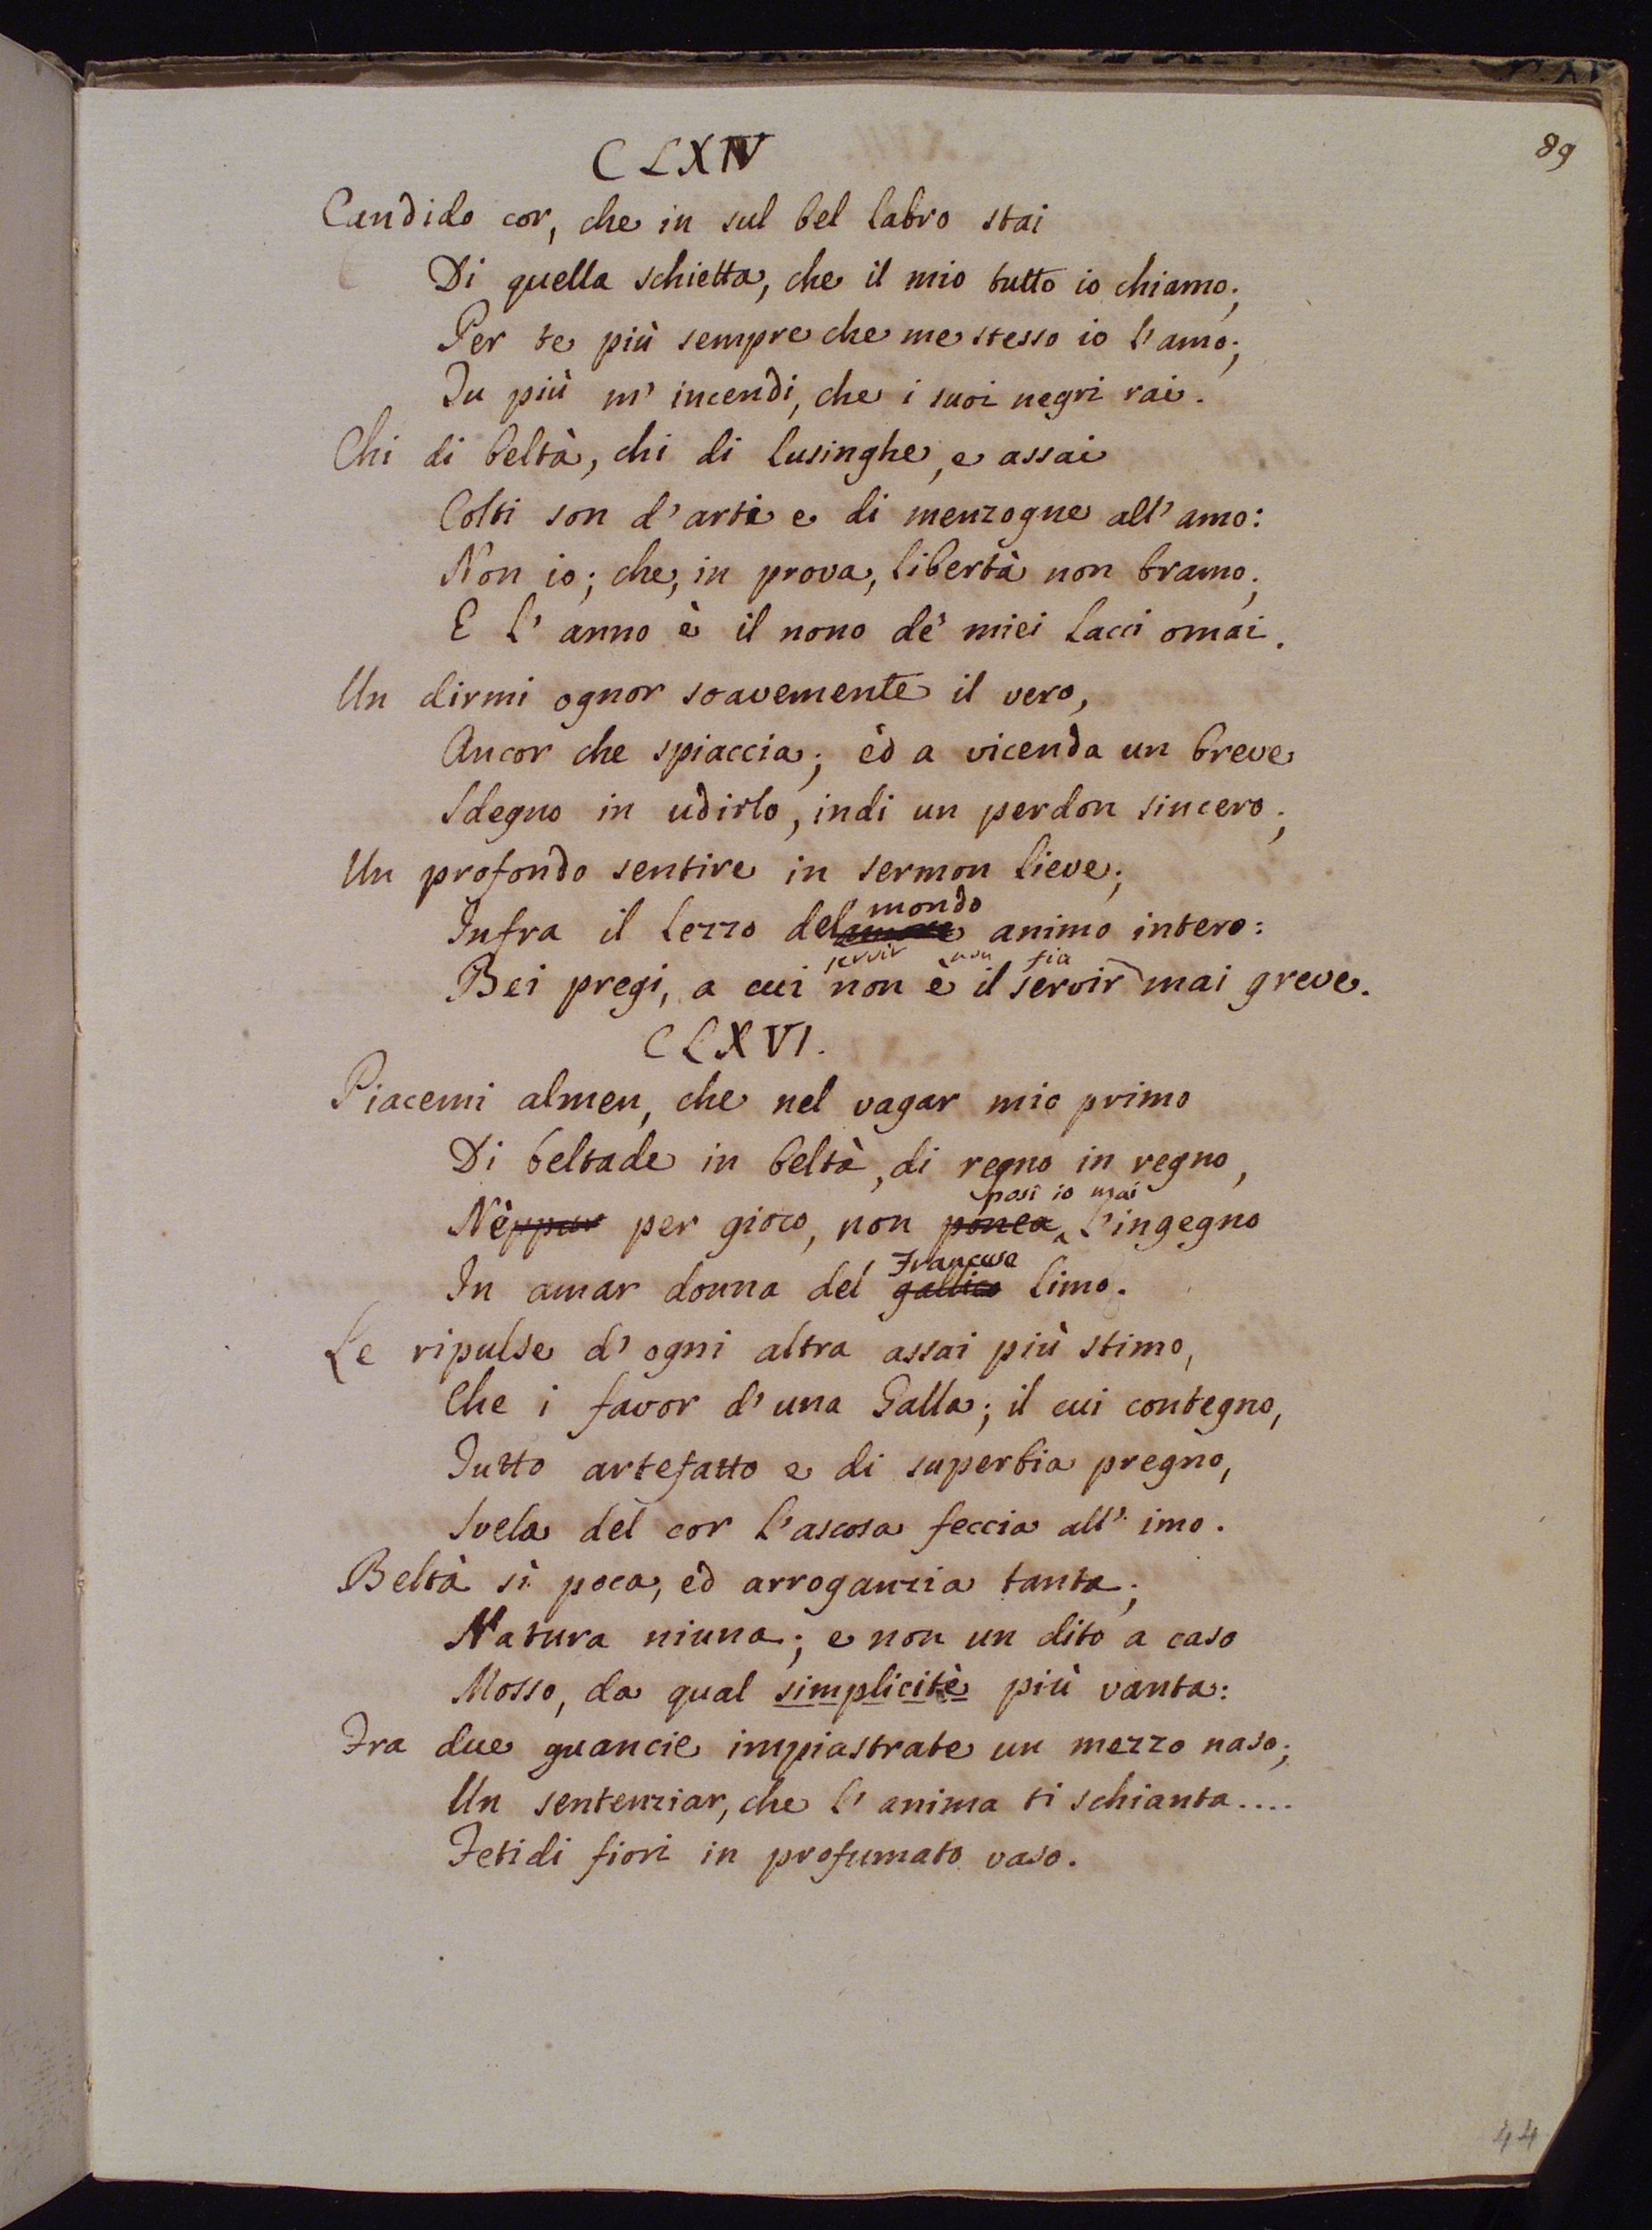 89
CLXIV
Candido cor, che in sul bel labro stai
Di quella schietta, che il mio tutto io chiamo;
Per te più sempre che me stesso io l'amo;
Tu più m'incendi, che i suoi negri rai.
Chi di beltà, chi di lusinghe, e assai
Colti son d'arti e di menzogne all'amo:
Non io; che, in prova, libertà non bramo;
E l'anno è il nono de' miei lacci omai.
Un dirmi ognor soavemente il vero,
Ancor che spiaccia; ed a vicenda un breve
Sdegno in udirlo, indi un perdon sincero;
Un profondo sentire in sermon lieve;
mondo
Infra il lezzo del animo intero:
servir non fia
Bei pregi, a cui non è il servir mai greve.
CLXVI.
Piacemi almen, che nel vagar mio primo
Di beltade in beltà, di regno in regno,
posi io mai
Nèppur per gioco, non ponea l'ingegno
Francese
In amar donna del gallico limo.
Le ripulse d'ogni altra assai più stimo,
Che i favor d'una Galla; il cui contegno,
Tutto artefatto e di superbia pregno,
Svela del cor l'ascosa feccia all'imo.
Beltà sì poca, ed arroganzia tanta;
Natura niuna; e non un dito a caso
Mosso, da qual simplicitè più vanta:
Fra due guancie impiastrate un mezzo naso;
Un sentenziar, che l'anima ti schianta....
Fetidi fiori in profumato vaso.
44